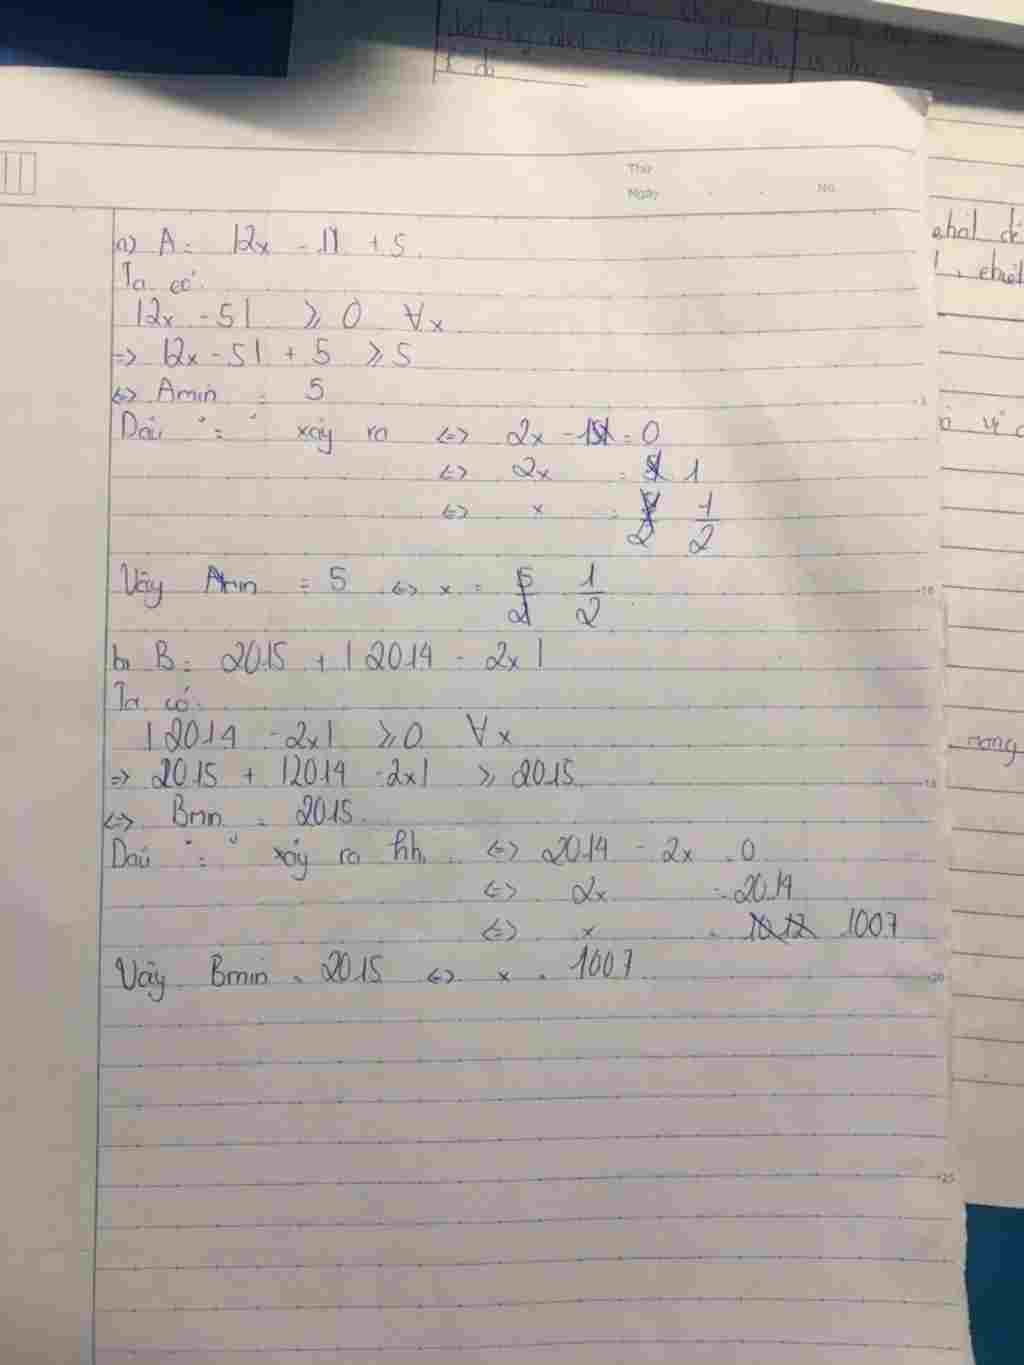 Thứ
Ngày No.
a) A = |2x - 1| + 5
Ta có:
|2x - 5| ≥ 0 ∀x
=> |2x - 5| + 5 ≥ 5
<=> Amin = 5
Dấu "=" xảy ra <=> 2x - 1 = 0
<=> 2x = 1
<=> x = 1/2
Vậy Amin = 5 <=> x = 1/2
b) B = 2015 + |2014 - 2x|
Ta có:
|2014 - 2x| ≥ 0 ∀x
=> 2015 + |2014 - 2x| ≥ 2015
<=> Bmin = 2015
Dấu "=" xảy ra khi <=> 2014 - 2x = 0
<=> 2x = 2014
<=> x = 1007
Vậy Bmin = 2015 <=> x = 1007